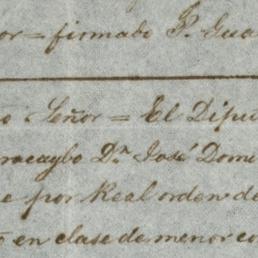 or = firmado P. Gua
o Señor = El Dipu
racaybo Dn José Domi
e por Real orden de
en clase de menor co